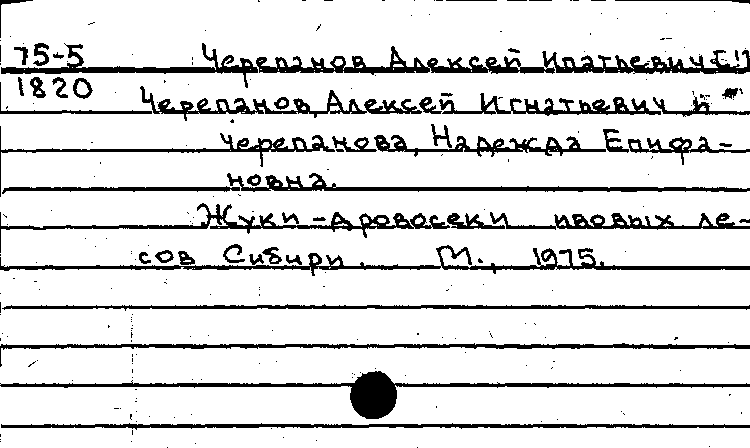 75-5 Черепанов Алексей Ипатьевич[!]
1820
Черепанов, Алексей Игнатьевич и
Черепанова, Надежда Епифа-
новна.
Жуки-дровосеки ивовых ле-
сов Сибири. М., 1975.